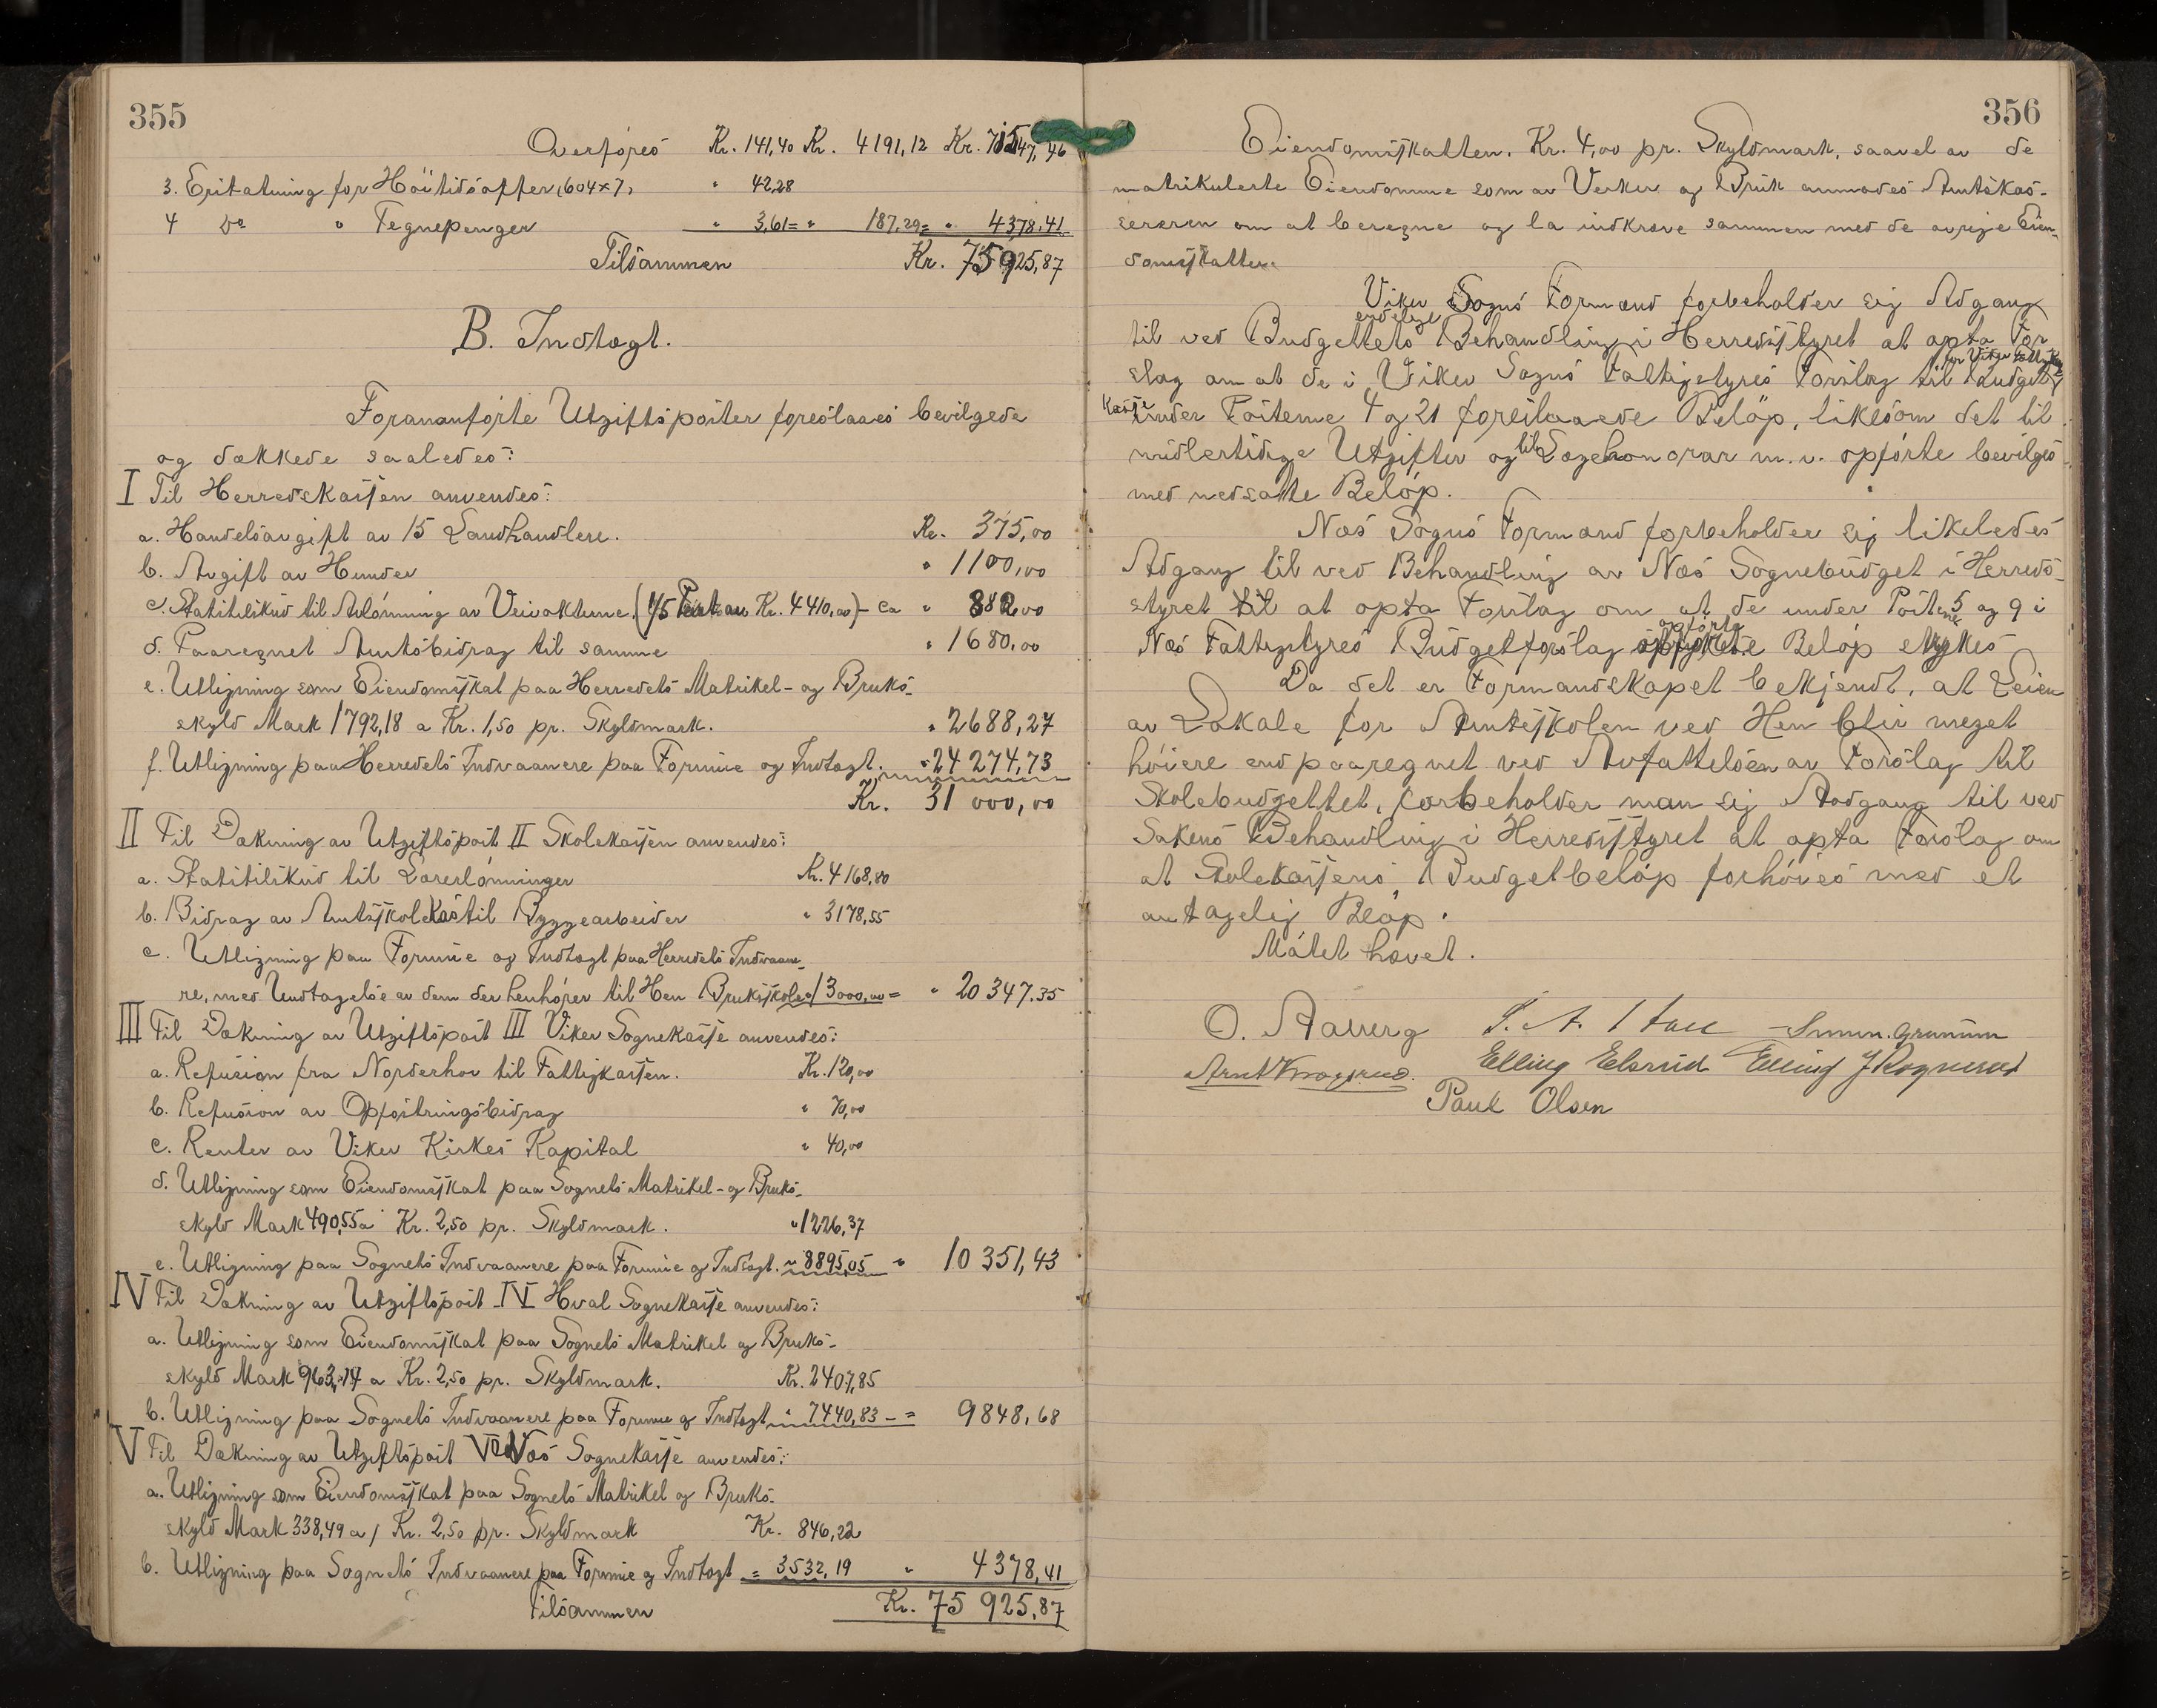 355
Overføres Kr. 141,40 Kr. 4191,12 Kr. 71547,46
3. Erstatning for Höitidsoffer (604x7) " 42,28
4 do " Tegnepenger " 3,61 = " 187,29 = " 4378,41
Tilsammen Kr. 75925,87
B. Indtægt.
Forananførte Utgiftsposter foreslaaes bevilgede
og dækkede saaledes:
I Til Herredskassen anvendes:
a. Handelsavgift av 15 Landhandlere. Kr. 375,00
b. Avgift av Hunder " 1100,00
c. Statstilskud til Avlønning av Veivokterne. (1/5 Part av Kr. 4410,00) - Ca " 882,00
d. Paaregnet Amtsbidrag til samme " 1680,00
e. Utligning som Eiendomsskat paa Herredets Matrikel- og Bruks-
skyld Mark 1792,18 a Kr. 1,50 pr. Skyldmark. " 2688,27
f. Utligning paa Herredets Indvaanere paa Formue og Indtægt. " 24274,73
Kr. 31000,00
II Til Dækning av Utgiftspost II Skolekassen anvendes:
a. Statstilskud til Lærerlønninger Kr. 4168,80
b. Bidrag av Amtsskolekas til Byggearbeider " 3178,55
c. Utligning paa Formue og Indtægt paa Herredets Indvaane-
re, med Undtagelse av dem der henhører til Hen Bruksskole 13000,00 = " 20347.35
III Til Dækning av Utgiftspost III Viker Sognekasse anvendes:
a. Refusion fra Norderhov til Fattigkassen. Kr. 120,00
b. Refusion av Opfostringsbidrag " 70,00
c. Renter av Viker Kirkes Kapital " 40,00
d. Utligning som Eiendomsskat paa Sognets Matrikel- og Bruks-
skyld Mark 490,55 a Kr. 2,50 pr. Skyldmark. " 1226,37
e. Utligning paa Sognets Indvaanere paa Formue og Indtægt. " 8895,05 " 10351,43
IV Til Dækning av Utgiftspost IV Hval Sognekasse anvendes:
a. Utligning som Eiendomsskat paa Sognets Matrikel og Bruks-
skyld Mark 963,14 a Kr. 2,50 pr. Skyldmark. Kr. 2407,85
b. Utligning paa Sognets Indvaanere paa Formue og Indtægt " 7440,83 - = 9848,68
V Til Dækning av Utgiftspost V Næs Sognekasse anvendes:
a. Utligning som Eiendomsskat paa Sognets Matrikel og Bruks-
skyld Mark 338,49 a/ Kr. 2,50 pr. Skyldmark Kr. 846,22
b. Utligning paa Sognets Indvaanere paa Formue og Indtægt = 3532,19 " 4378,41
Tilsammen Kr. 75 925,87
356
Eiendomsskatten, Kr. 4,00 pr. Skyldmark, saavel av de
matrikulerte Eiendomme som av Verker og Bruk anmodes Amtskas-
sereren om at beregne og la indkræve sammen med de øvrige Eien-
domsskatter.
Viker Sogns Formænd forbeholder sig Adgang
til ved Budgettets endelige Behandling i Herredsstyret at opta For
slag om at de i Viker Sogns Fattigstyres Forslag til Budget for Viker Fattig-
kasse under Posterne 4 og 21 foreslaaede Beløp, likesom det til
midlertidige Utgifter og til Lægehonorar m.v. opførte bevilges
med nedsatte Beløp.
Næs Sogns Formænd forbeholder sig likeledes
Adgang til ved Behandling av Næs Sognebudget i Herreds-
styret til at opta Forslag om at de under Posterne 5 og 9 i
Næs Fattigstyres Budgetforslag opførte Beløp strykes
Da det er Formandskapet bekjendt, at Leien
av Lokale for Amtsskolen ved Hen blir meget
høiere end paaregnet ved Avfattelsen av Forslag til
Skolebudgettet, forbeholder man sig Aadgang til ved
Sakens Behandling i Herredsstyret at opta Forslag om
at Skolekassens Budgetbeløp forhøies med et
antagelig Beløp.
Møtet hævet.
O. Aaberg
Elling Elsrud
Paul Olsen